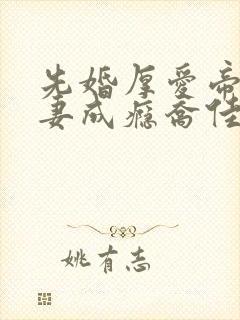 先婚厚爱帝
妻成瘾乔佳
姚有志